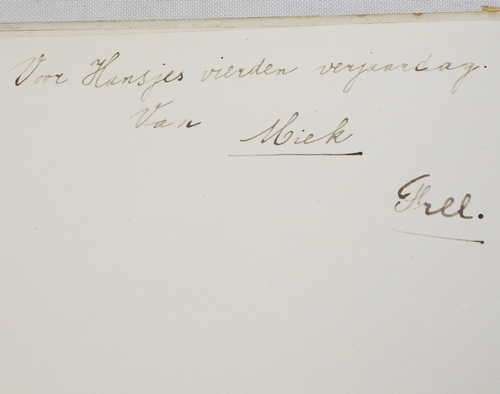 Voor Hansjes vierden verjaardag.
Van Miek